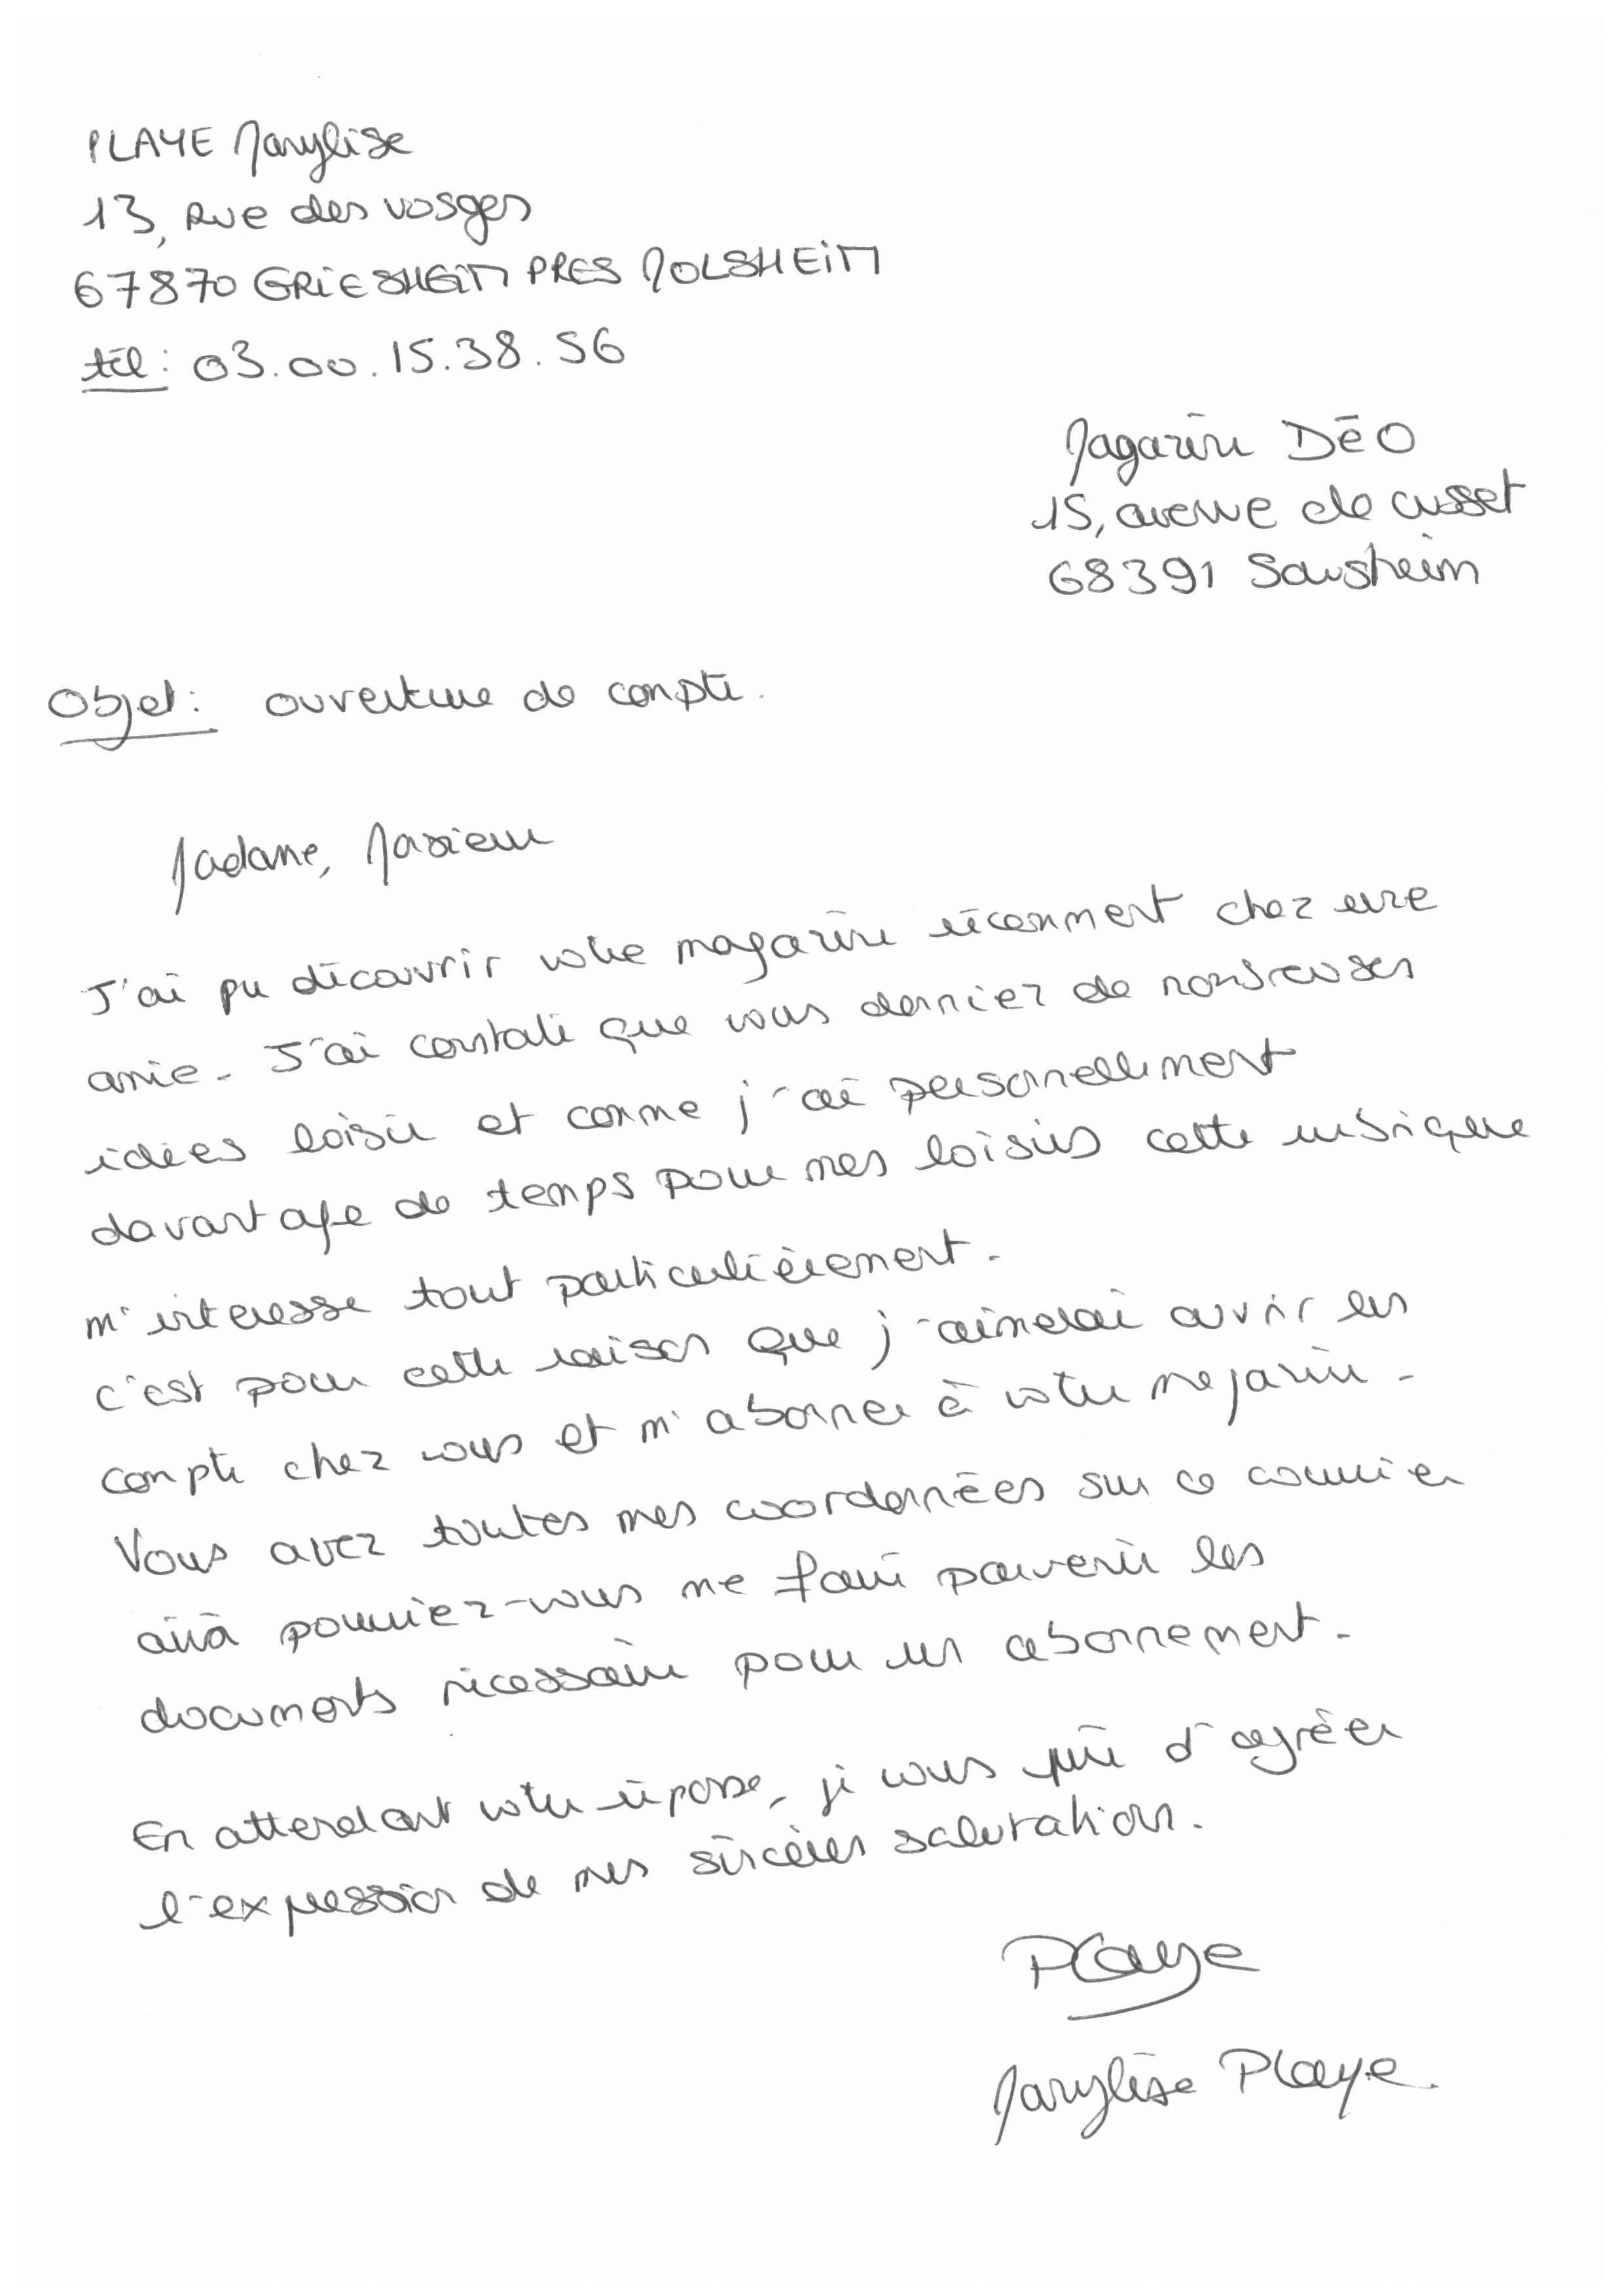 PLAYE Marylise
13, Rue des vosges
67870 GRIESHEIM PRES MOLSHEIM
tél : 03.00.15.38.56
Magazine DéO
15, avenue de cusset
68391 Sausheim
Objet : ouverture de compte.
Madame, Monsieur
J'ai pu découvrir votre magazine récemment chez une
amie. J'ai constaté que vous donniez de nombreuses
idées loisir et comme j'ai personnellement
davantage de temps pour mes loisirs cette rubrique
m'interesse tout particulièrement.
c'est pour cette raison que j'aimerai ouvrir un
compte chez vous et m'abonner à votre magazine.
Vous avez toutes mes coordonnées sur ce courrier
aussi pourriez-vous me faire parvenir les
documents nécessaire pour un abonnement.
En attendant votre réponse, je vous prie d'agréer
l'expression de mes sincères salutation.
Playe
Marylise Playe.